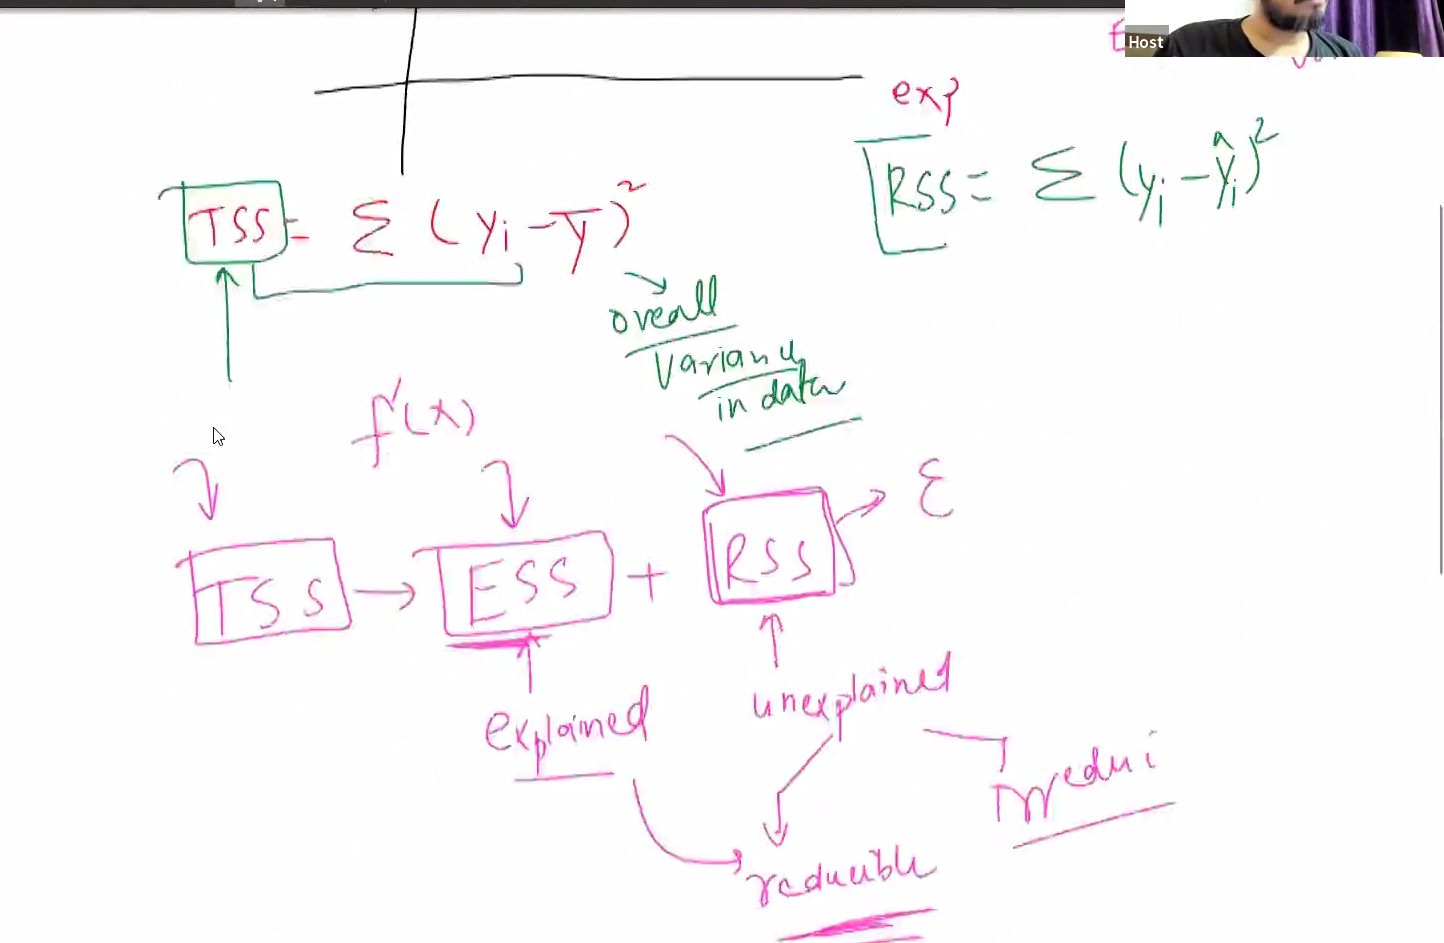 Host
exp
RSS = Σ (yi - ŷi)²
TSS = Σ (yi - ȳ)²
overall
variance
in data
f'(x)
ε
TSS → ESS + RSS
explained
unexplained
Irreduci
reducible